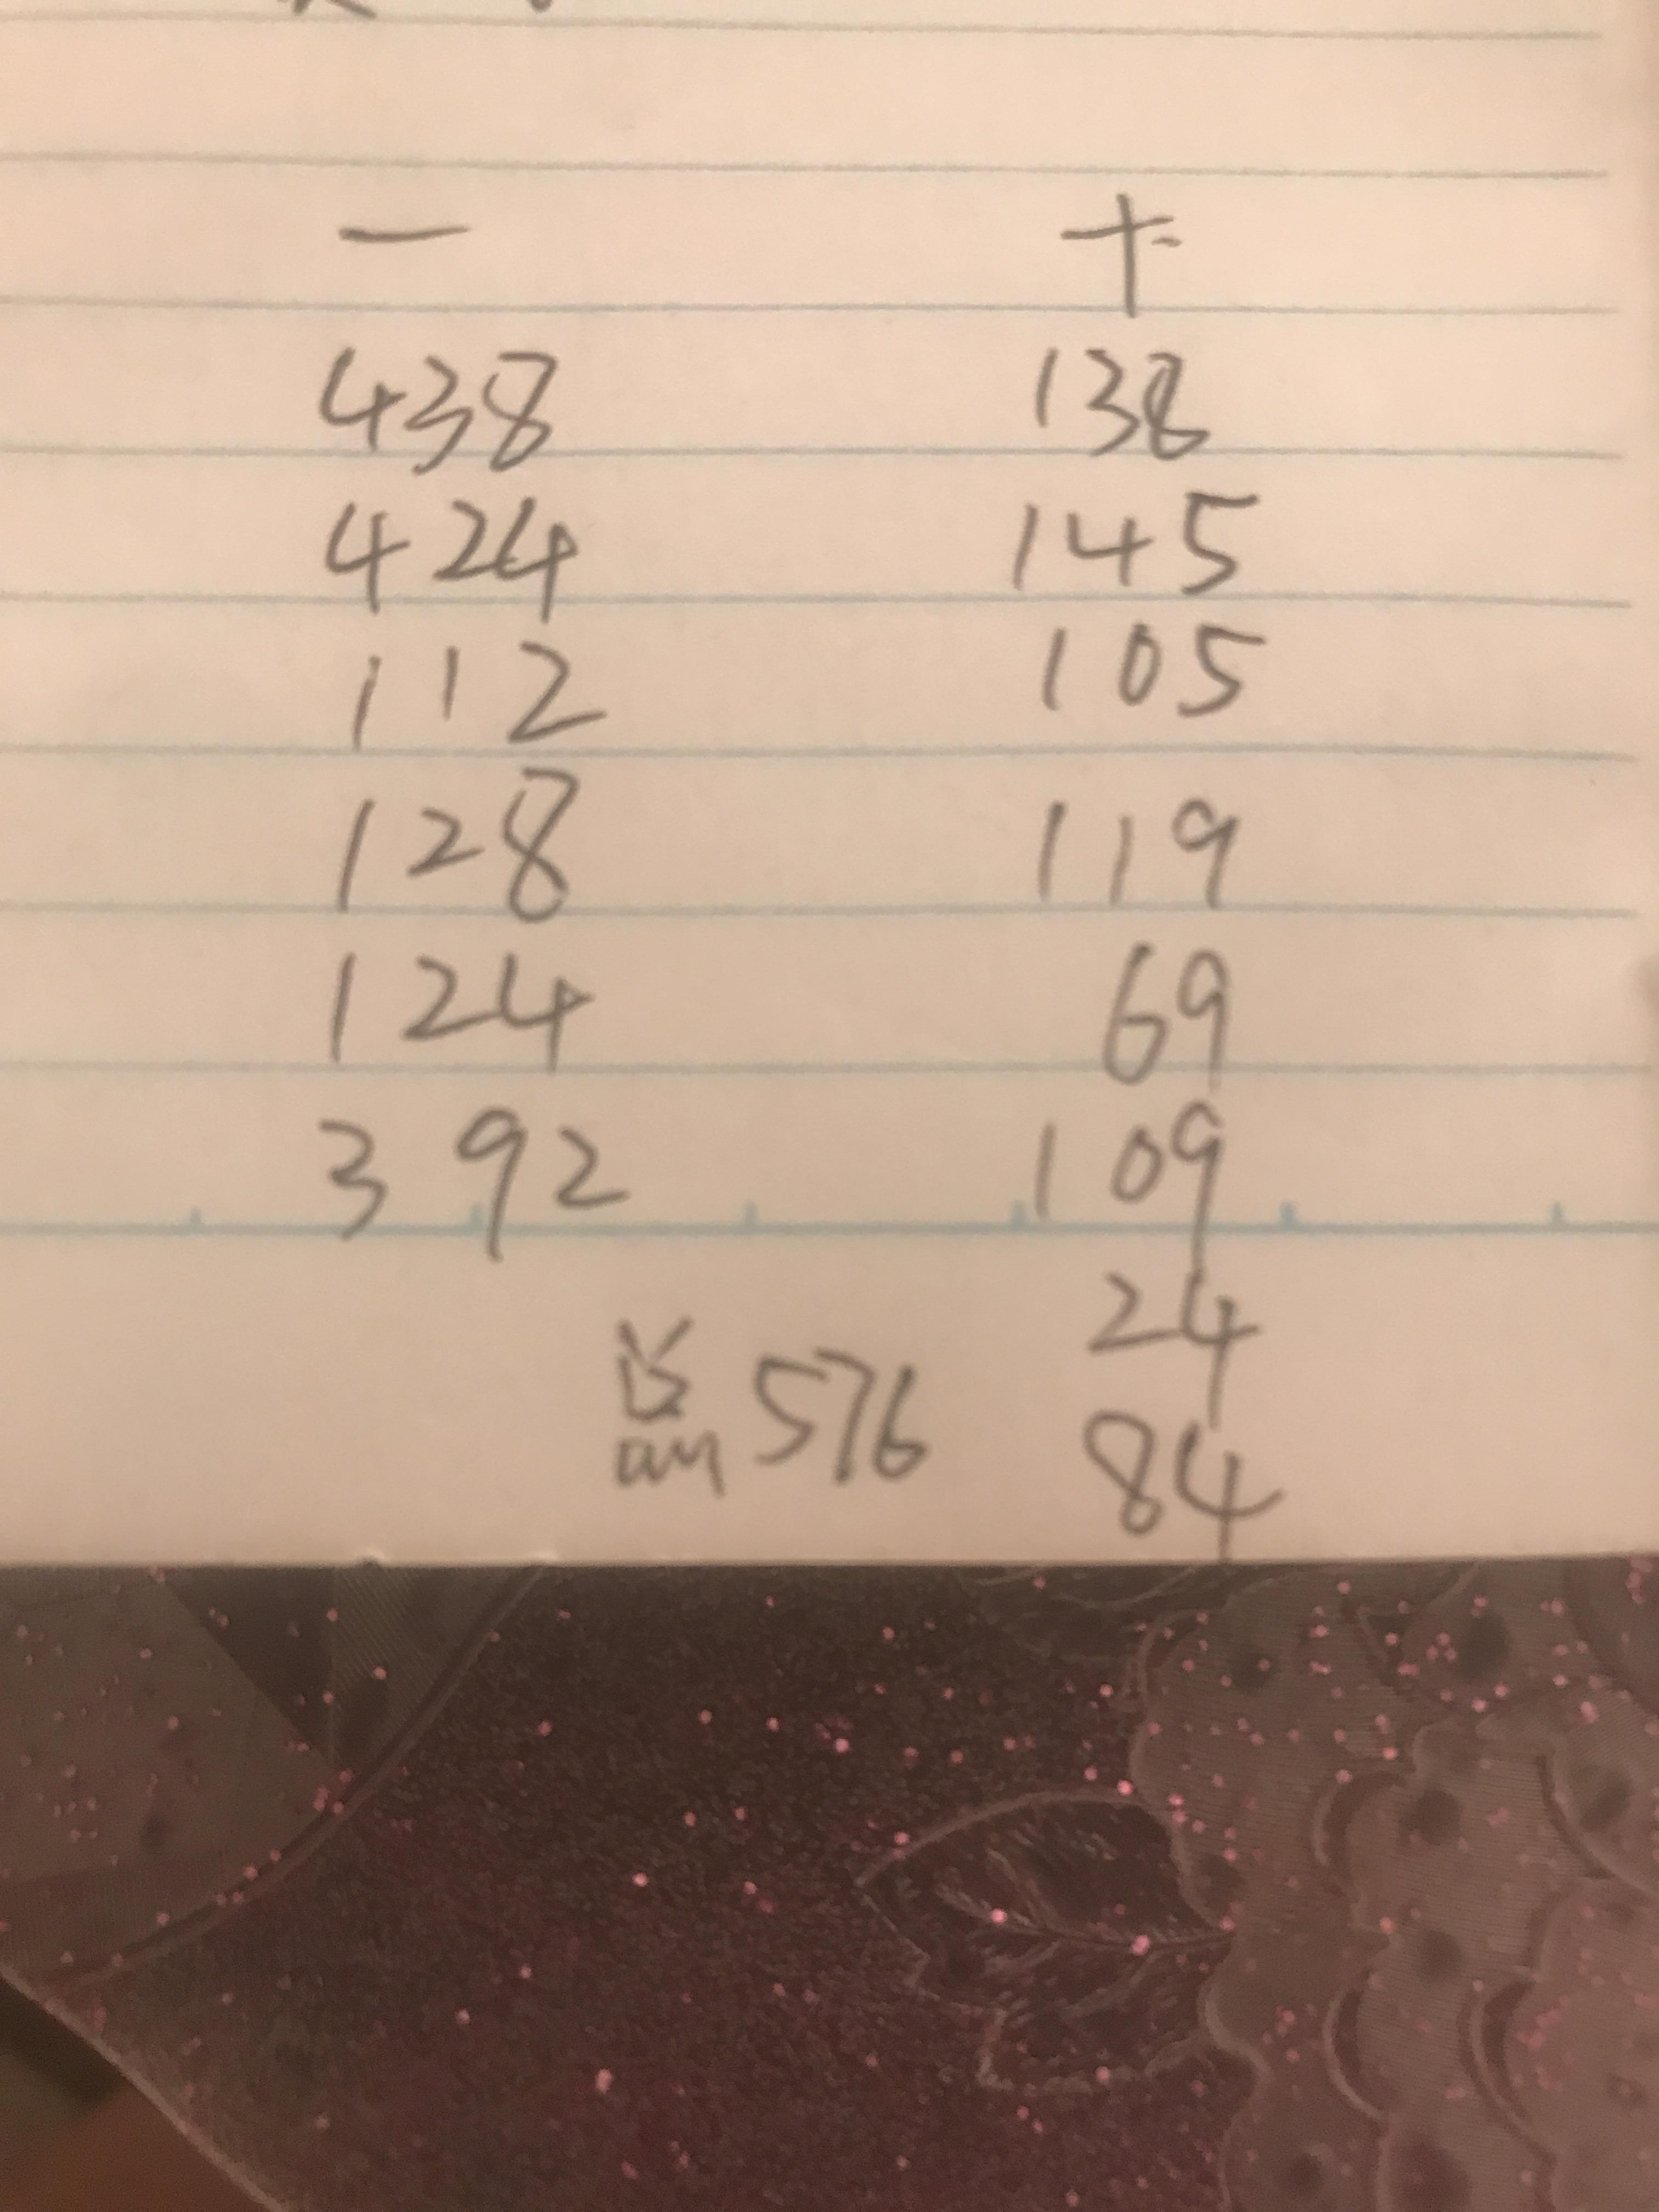 一 十
438 138
424 145
112 105
128 119
124 69
392 109
24
总 576
84